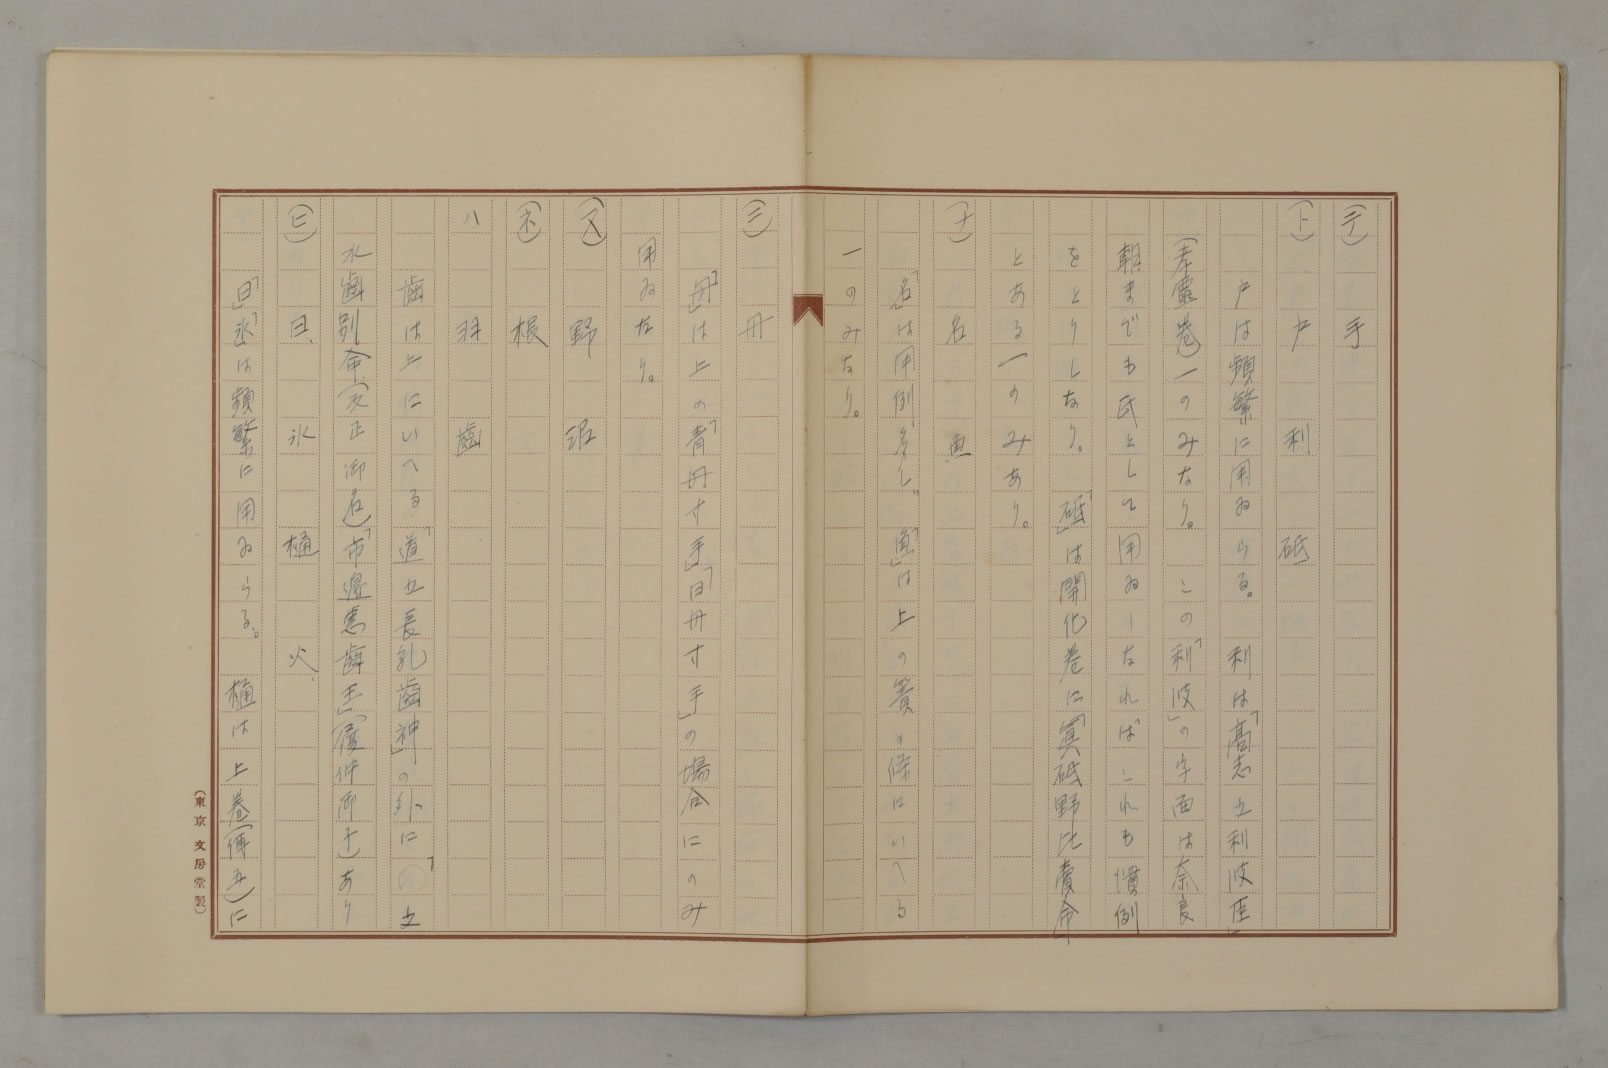 (テ)　手
(ト)　戸　利　砥
戸は頻繁に用ゐらる。利は「高志之利波臣」
(孝霊巻)一のみなり。この「利波」の字面は奈良
朝までも氏として用ゐ来れればこれも慣例
をとりしなり。「砥」は開化巻に「眞砥野比賣命」
とある一のみあり。
(ナ)　名　魚
「名」は用例多し。「魚」は上の簀の條にいへる
一のみなり。
(ニ)　丹
「丹」は上の「青丹寸手」「白丹寸手」の場合にのみ
用ゐたり。
(ヌ)　野　沼
(ネ)　根
ハ　羽　齒
齒は上にいへる「道之長乳齒神」の外に「之
水齒別命(反正御名)「市邊忍齒王」(履仲御子)あり
(ヒ)　日、氷　樋　火、
「日」「氷」は頻繁に用ゐらる。樋は上巻(傳五)に
(東京 文房堂製)